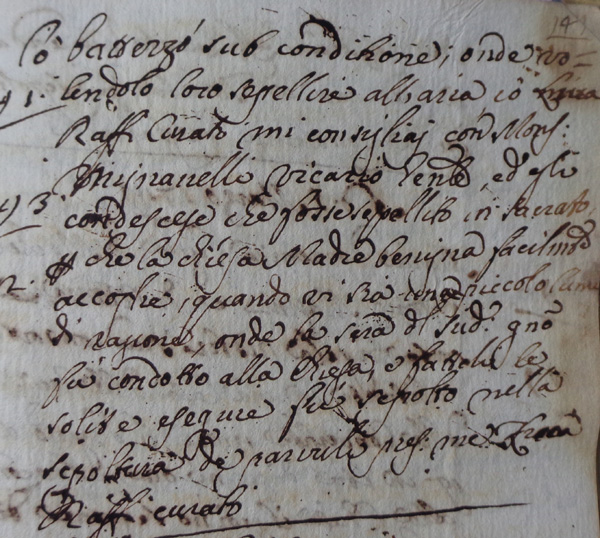 lo battezzó sub condizione; onde vo=
lendolo loro sepellire all'aria io
Raff. Curato mi consigliaj con Mons:
Mignanelli vicario, ed egli
condescese che fosse sepellito in sacrato,
che la chiesa Madre benigna facilm.e
accoglie, quando vi sia un piccolo lume
di ragione, onde la sera dl sud.o gno
fú condotto alla Chiesa, e fatteli le
solite esequie fú sepolto nella
sepoltura de parvuli pres: me
Raff. curato